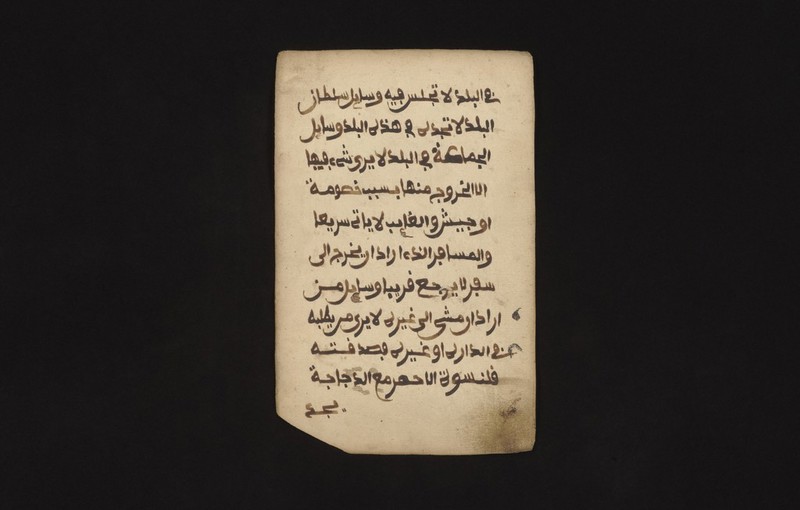 في البلد لا تجلس فيه وسايل سلطان
البلد لا تجد في هذه البلد وسايل
الجماعة في البلد لا يرى شيء فيها
الا الخروج منها بسبب خصومة
او جيش والغايب لا ياتي سريعا
والمسافر الذي اراد ان يخرج الى
سفر لا يرجع قريبا وسايل من
اراد ان مشى الى غيره لا يرى من يطلبه
في الدار او غيره فصدقته
قلنسوة الاحمر مع الدجاجة